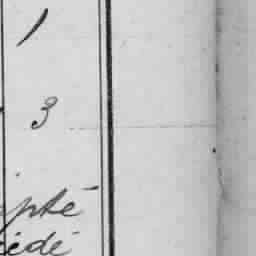 1
3
pté
édé